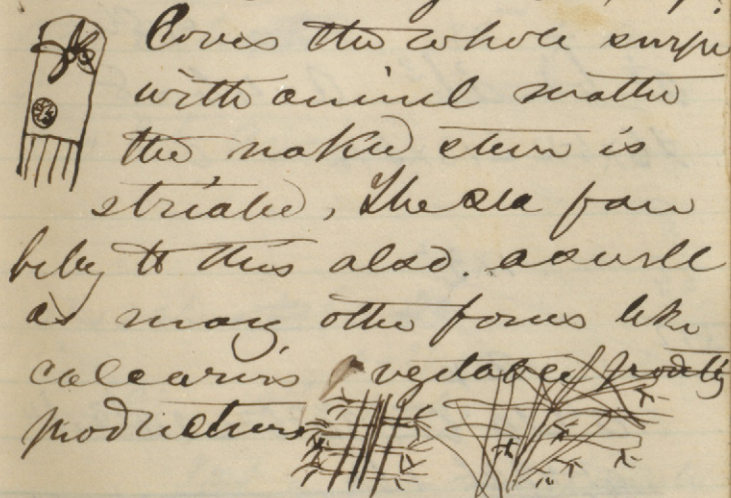 Covers the whole surfa
with animl matter
the naked stem is
striated, The sea fan
belong to this also. as well
as many other forms like
calcarious vegetable
productions